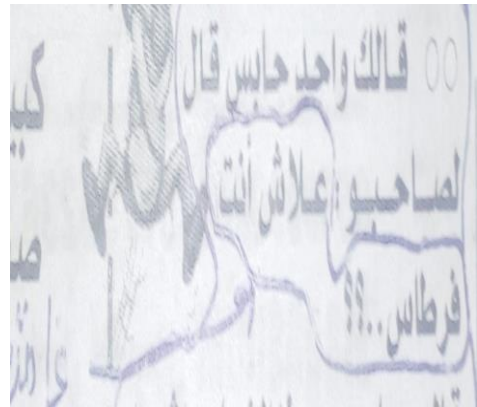 ○○ قالك واحد حابس قال
لصاحبو: علاش أنت
فرطاس..؟؟